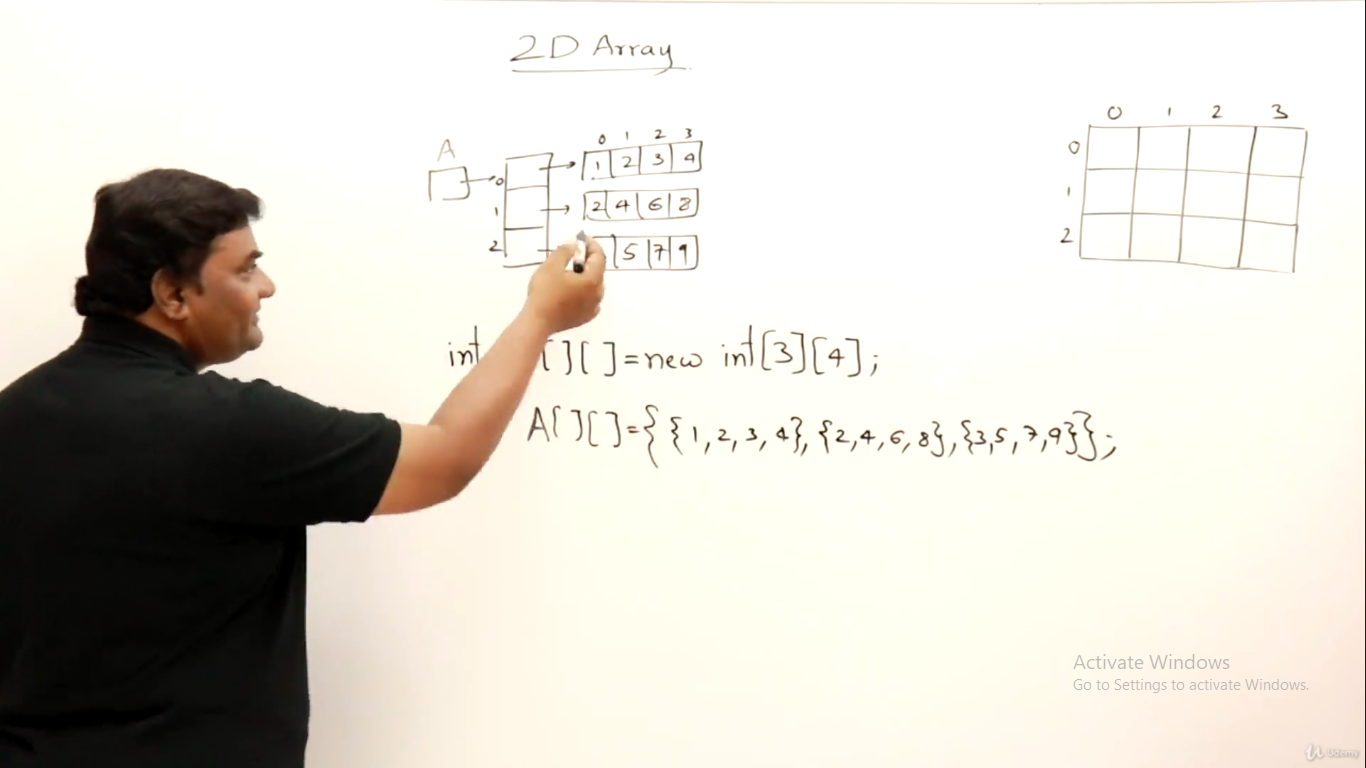 2D Array
A
0 1 2 3
0 1 2 3 4
1 2 4 6 8
2 5 7 9
0 1 2 3
0
1
2
int [][]=new int[3][4];
A[][]={{1,2,3,4},{2,4,6,8},{3,5,7,9}};
Activate Windows
Go to Settings to activate Windows.
Udemy